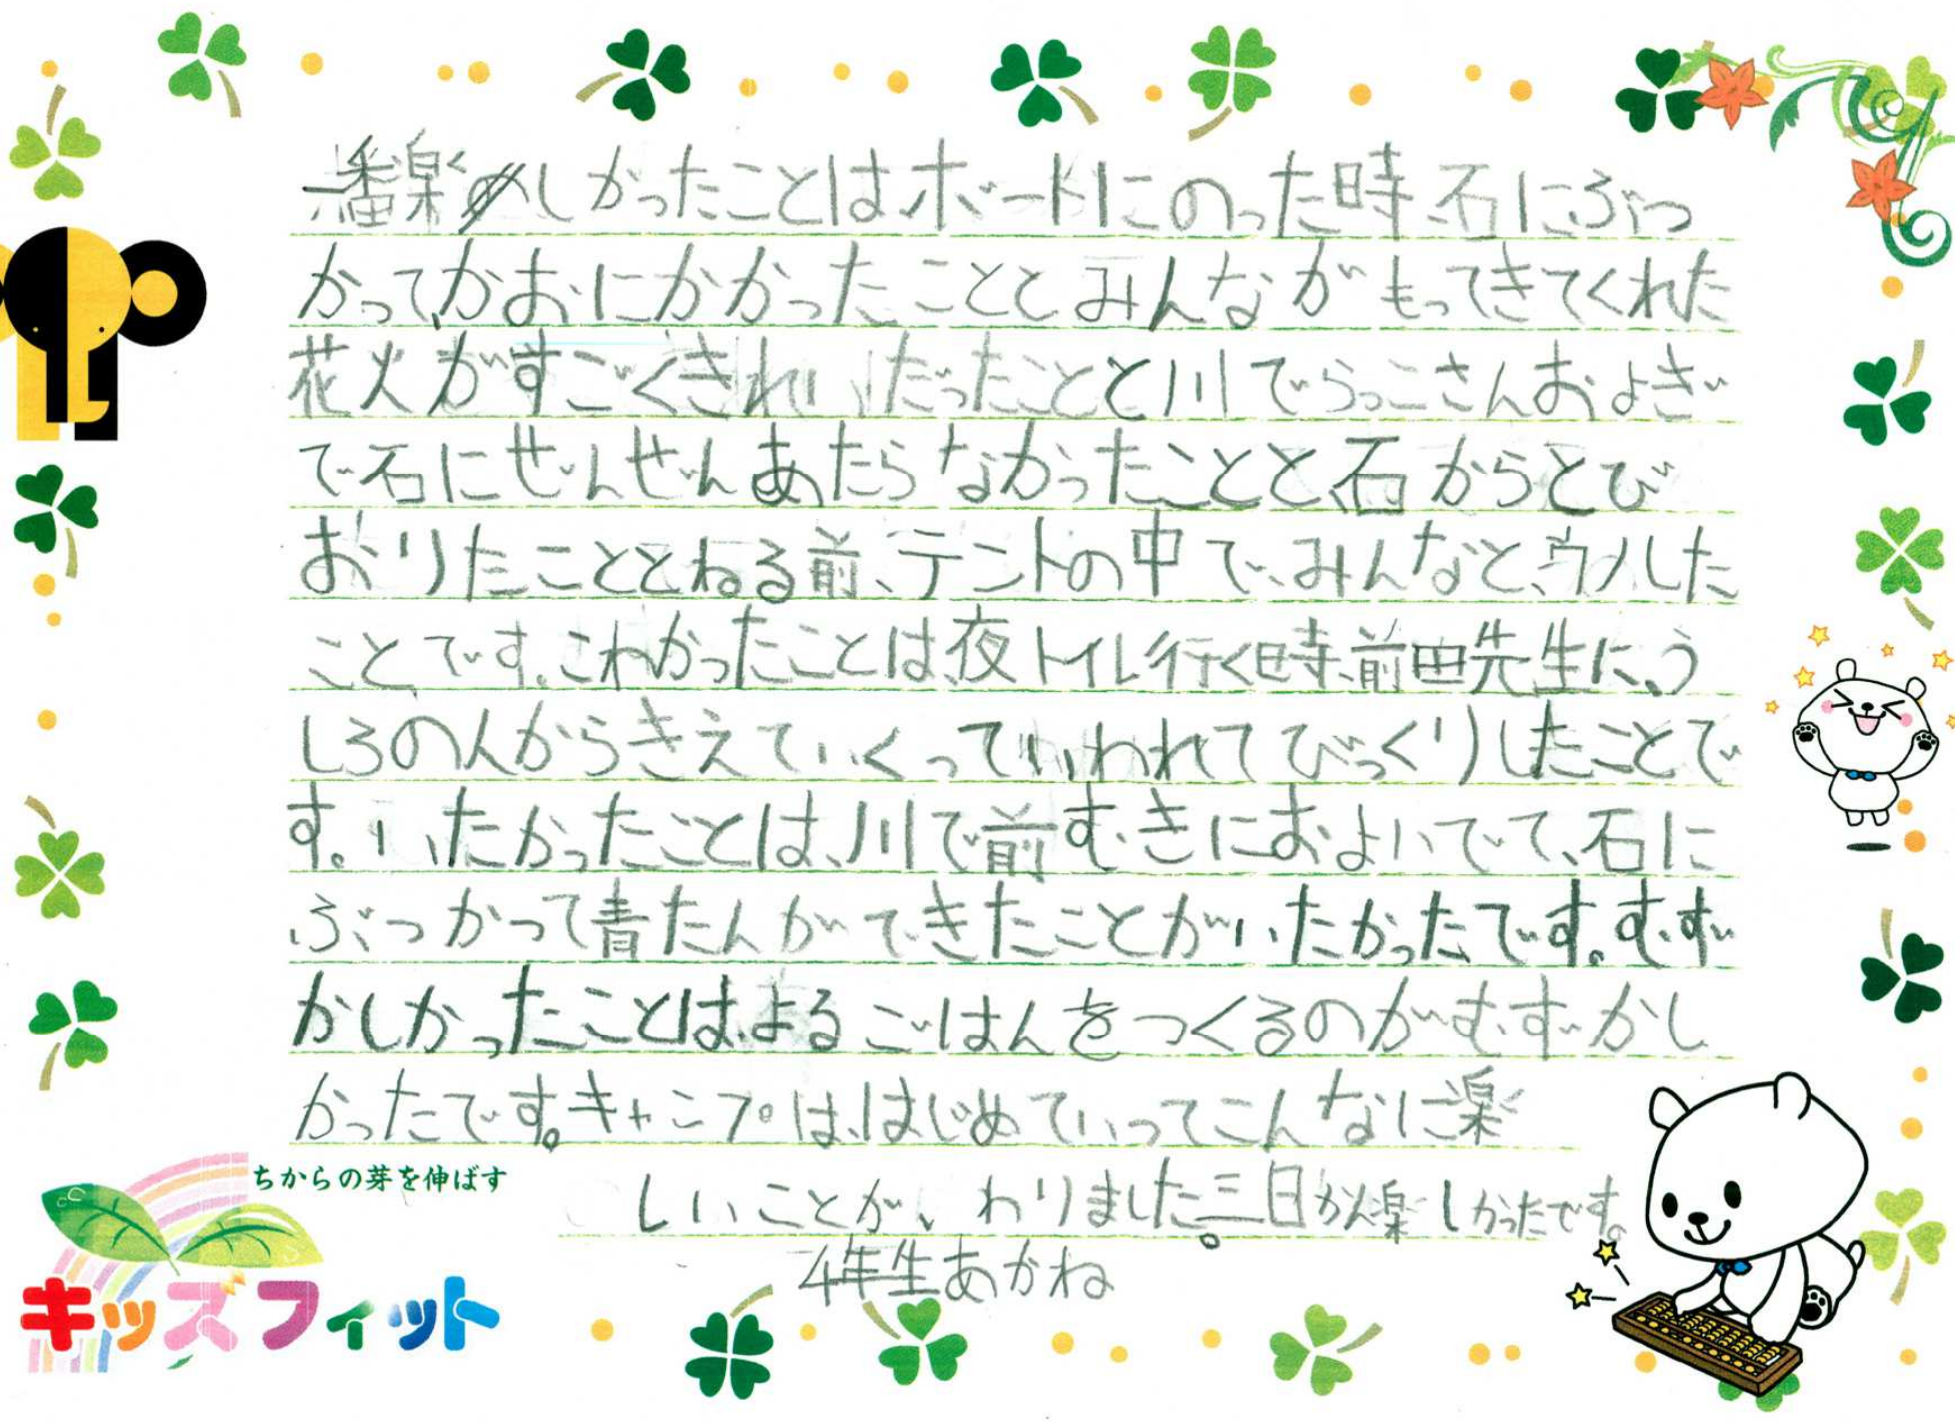 一番楽しかったことは、ボードにのった時、石にぶつ
かって、かおにかかったことと、みんながもってきてくれた
花火がすごくきれいだったことと川でらっこさんおよぎ
で石にぜんぜんあたらなかったことと、石からとび
おりたこととねる前、テントの中で、みんなと、ウノした
ことです。これわかったことは、夜トイレ行く時、前田先生に、う
しろの人からきえていくっていわれてびっくりしたことで
す。いたかったことは、川で前むきにおよいでて、石に
ぶつかって青たんができたことがいたかったです。むずか
かしかったことは、よるごはんをつくるのがむずかし
かったです。キャンプは、はじめていってこんなに楽
しいことが、わりました。三日かん楽しかったです。
4年生あかね
ちからの芽を伸ばす
キッズフィット